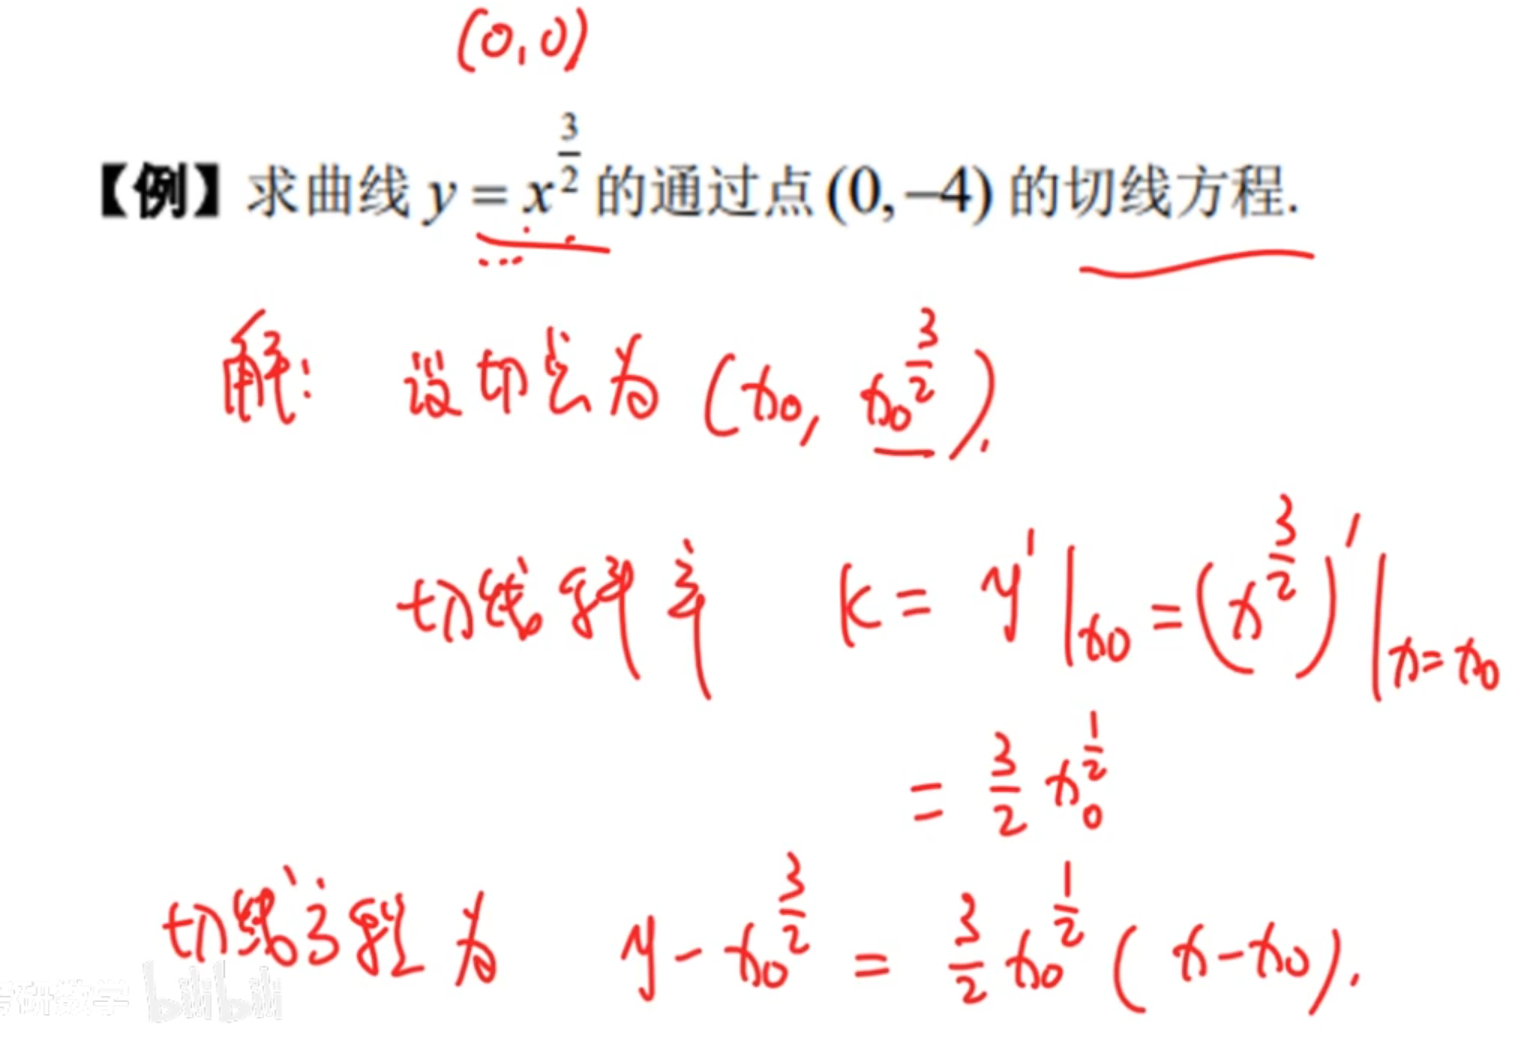 (0,0)
【例】求曲线 y = x^{3/2} 的通过点 (0, −4) 的切线方程.
解: 设切点为 (x₀, x₀^{3/2}).
切线斜率 k = y'|x₀ = (x^{3/2})'|x=x₀
= 3/2 x₀^{1/2}
切线方程为 y − x₀^{3/2} = 3/2 x₀^{1/2} (x − x₀).
考研数学 bilibili